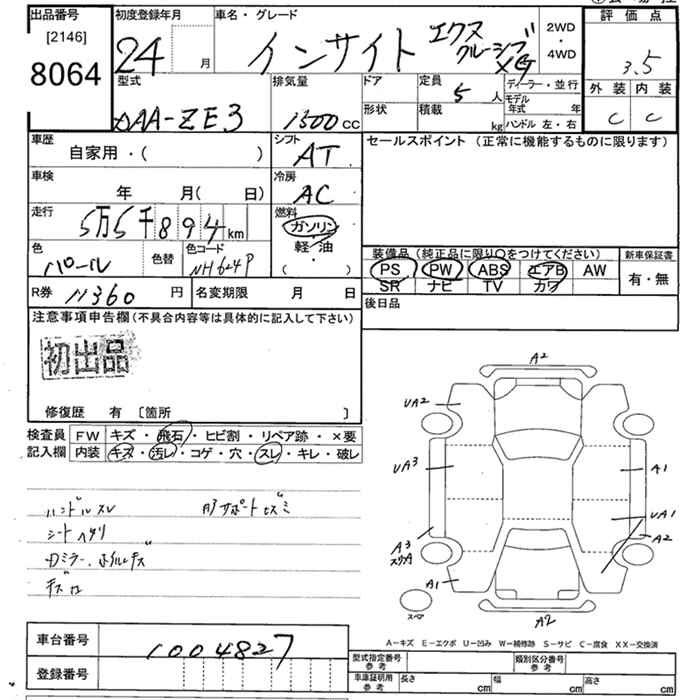 出品番号
[2146]
8064
初度登録年月
24 月
車名・グレード
インサイト エクス
クルーシブ
XG
2WD
・
4WD
評価点
3.5
外装 内装
C C
型式
DAA-ZE3
排気量
1500cc
ドア
形状
定員
5人
積載
kg
ディーラー・並行
モデル年式 年
ハンドル 左・右
車歴
自家用・( )
シフト
AT
セールスポイント (正常に機能するものに限ります)
車検
年 月( 日)
冷房
AC
走行
5万5千894km
燃料
ガソリン
軽油
( )
色
パール
色替
色コード
NH624P
装備品(純正品に限り○をつけてください)
新車保証書
PS PW ABS エアB AW
SR ナビ TV カワ
有・無
R券 11360円
名変期限 月 日
後日品
注意事項申告欄(不具合内容等は具体的に記入して下さい)
初出品
修復歴 有 [箇所 ]
検査員
記入欄
FW キズ・飛石・ヒビ割・リペア跡・×要
内装 キズ・汚レ・コゲ・穴・スレ・キレ・破レ
ハンドルスレ
シートヘタリ
Dミラー、ホイルキズ
A2
UA2
UA3
A1
UA1
A2
A3
スリA
A1
スペア
A2
A-キズ E-エクボ U-凹み W-補修跡 S-サビ C-腐食 XX-交換済
車台番号
1004827
登録番号
型式指定番号
参考
類別区分番号
参考
車庫証明用
参考
長さ cm
幅 cm
高さ cm